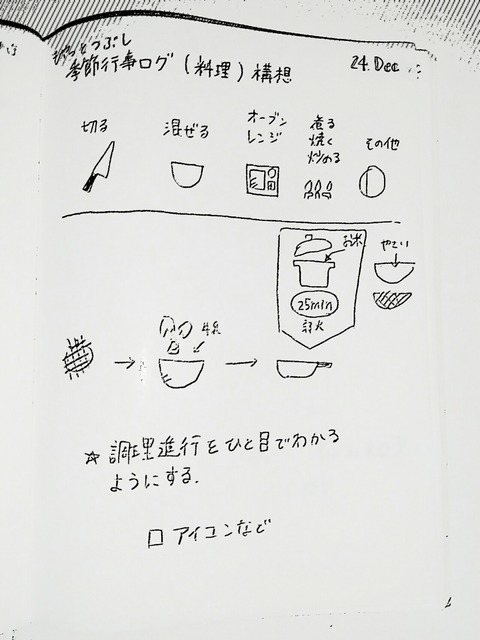 季節行事ログ(料理)構想
24.Dec
切る
混ぜる
オーブン
レンジ
煮る
焼く
炒める
その他
お米
25min
弱火
やさい
牛乳
☆調理進行をひと目でわかる
ようにする.
□アイコンなど